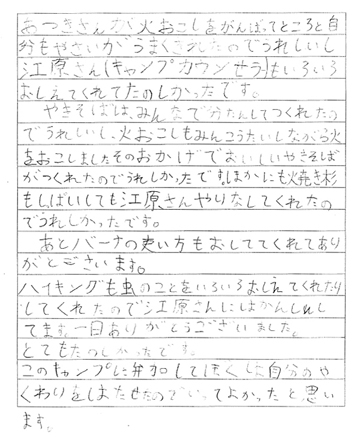 あつきさんが火おこしをがんばってところと自
分もやさいがうまくきれたのでうれしいし
江原さん(キャンプカウンセラ)もいろいろ
おしえてくれてたのしかったです。
やきそばは、みんなで分たんしてつくれたの
でうれしいし、火おこしもみんこうたいしながら火
をおこしましたそのおかげでおいしいやきそば
がつくれたのでうれしかったです。ほかにも焼き杉
もしぱいしても江原さんやりなしてくれたの
でうれしかったです。
あとバーナの使い方もおしててくれてあり
がとごさいます。
ハイキングも虫のことをいろいろおしえてくれたり
してくれたので江原さんにはかんしゃし
てます。一日ありがとうございました。
とてもたのしかったです。
このキャンプに参加してぼくは自分のや
くわりをはたせたのでいってよかったと思い
ます。